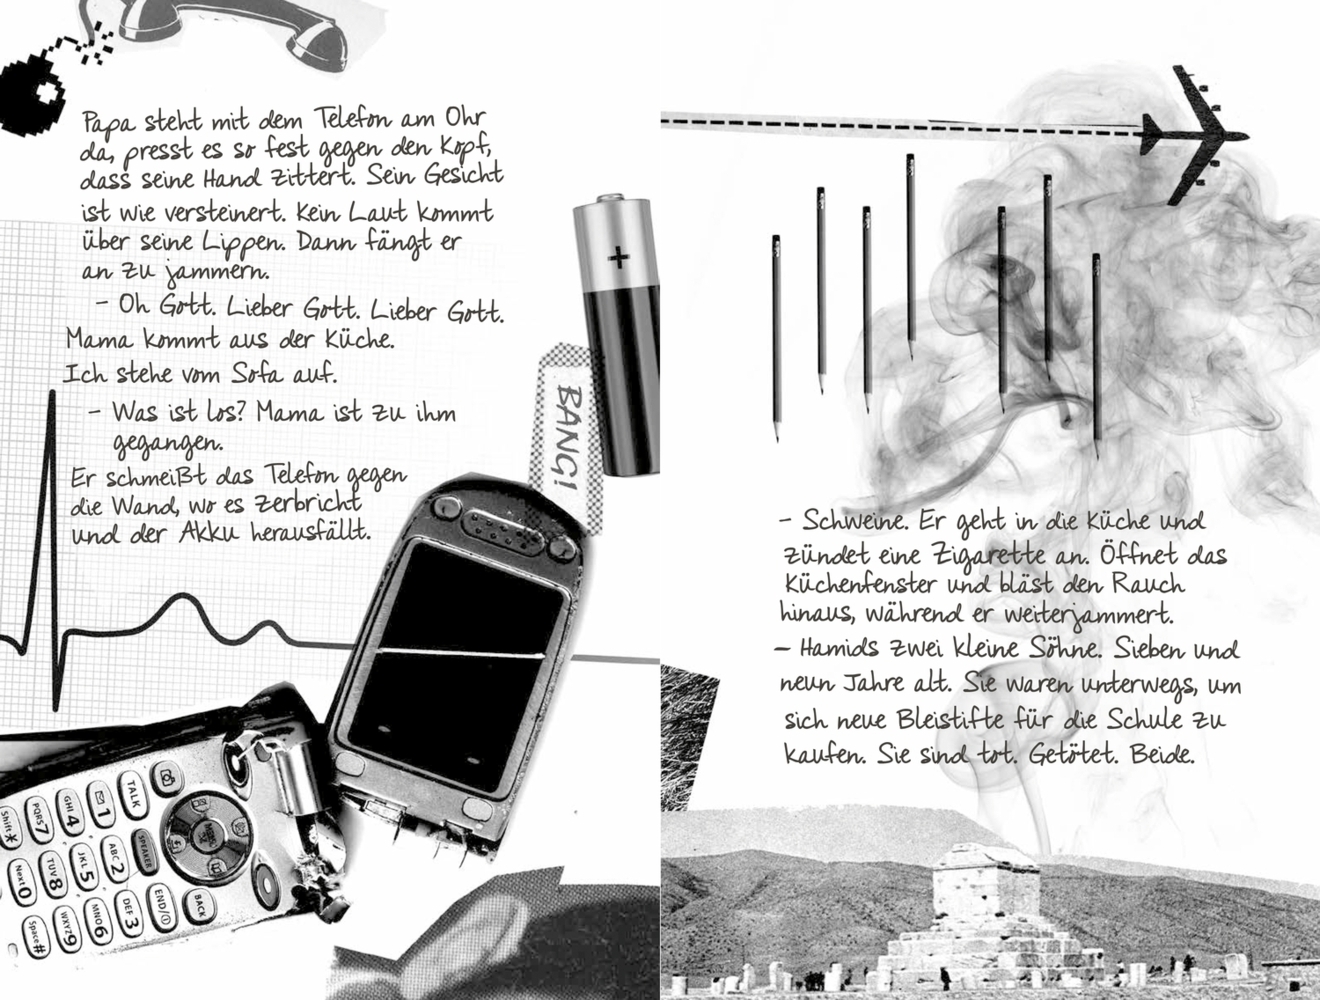 Papa steht mit dem Telefon am Ohr
da, presst es so fest gegen den Kopf,
dass seine Hand zittert. Sein Gesicht
ist wie versteinert. Kein Laut kommt
über seine Lippen. Dann fängt er
an zu jammern.
– Oh Gott. Lieber Gott. Lieber Gott.
Mama kommt aus der Küche.
Ich stehe vom Sofa auf.
– Was ist los? Mama ist zu ihm
gegangen.
Er schmeißt das Telefon gegen
die Wand, wo es zerbricht
und der Akku herausfällt.
BANG!
TALK
1
GHI4
PQRS7
Shift*
SPEAKER
ABC2
JKL5
TUV8
Next0
BACK
END/
DEF3
MNO6
WXYZ9
Space#
– Schweine. Er geht in die Küche und
zündet eine Zigarette an. Öffnet das
Küchenfenster und bläst den Rauch
hinaus, während er weiterjammert.
– Hamids zwei kleine Söhne. Sieben und
neun Jahre alt. Sie waren unterwegs, um
sich neue Bleistifte für die Schule zu
kaufen. Sie sind tot. Getötet. Beide.